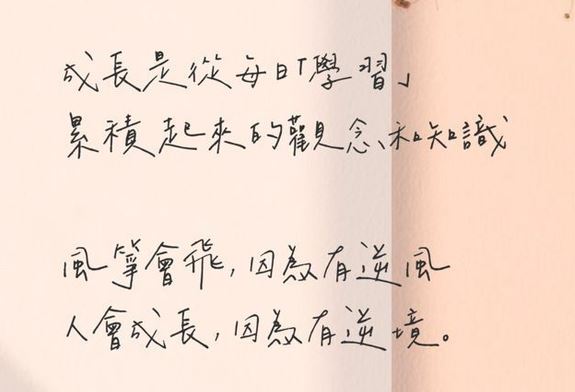 成長是從每日「學習」
累積起來的觀念和知識
風箏會飛,因為有逆風
人會成長,因為有逆境。